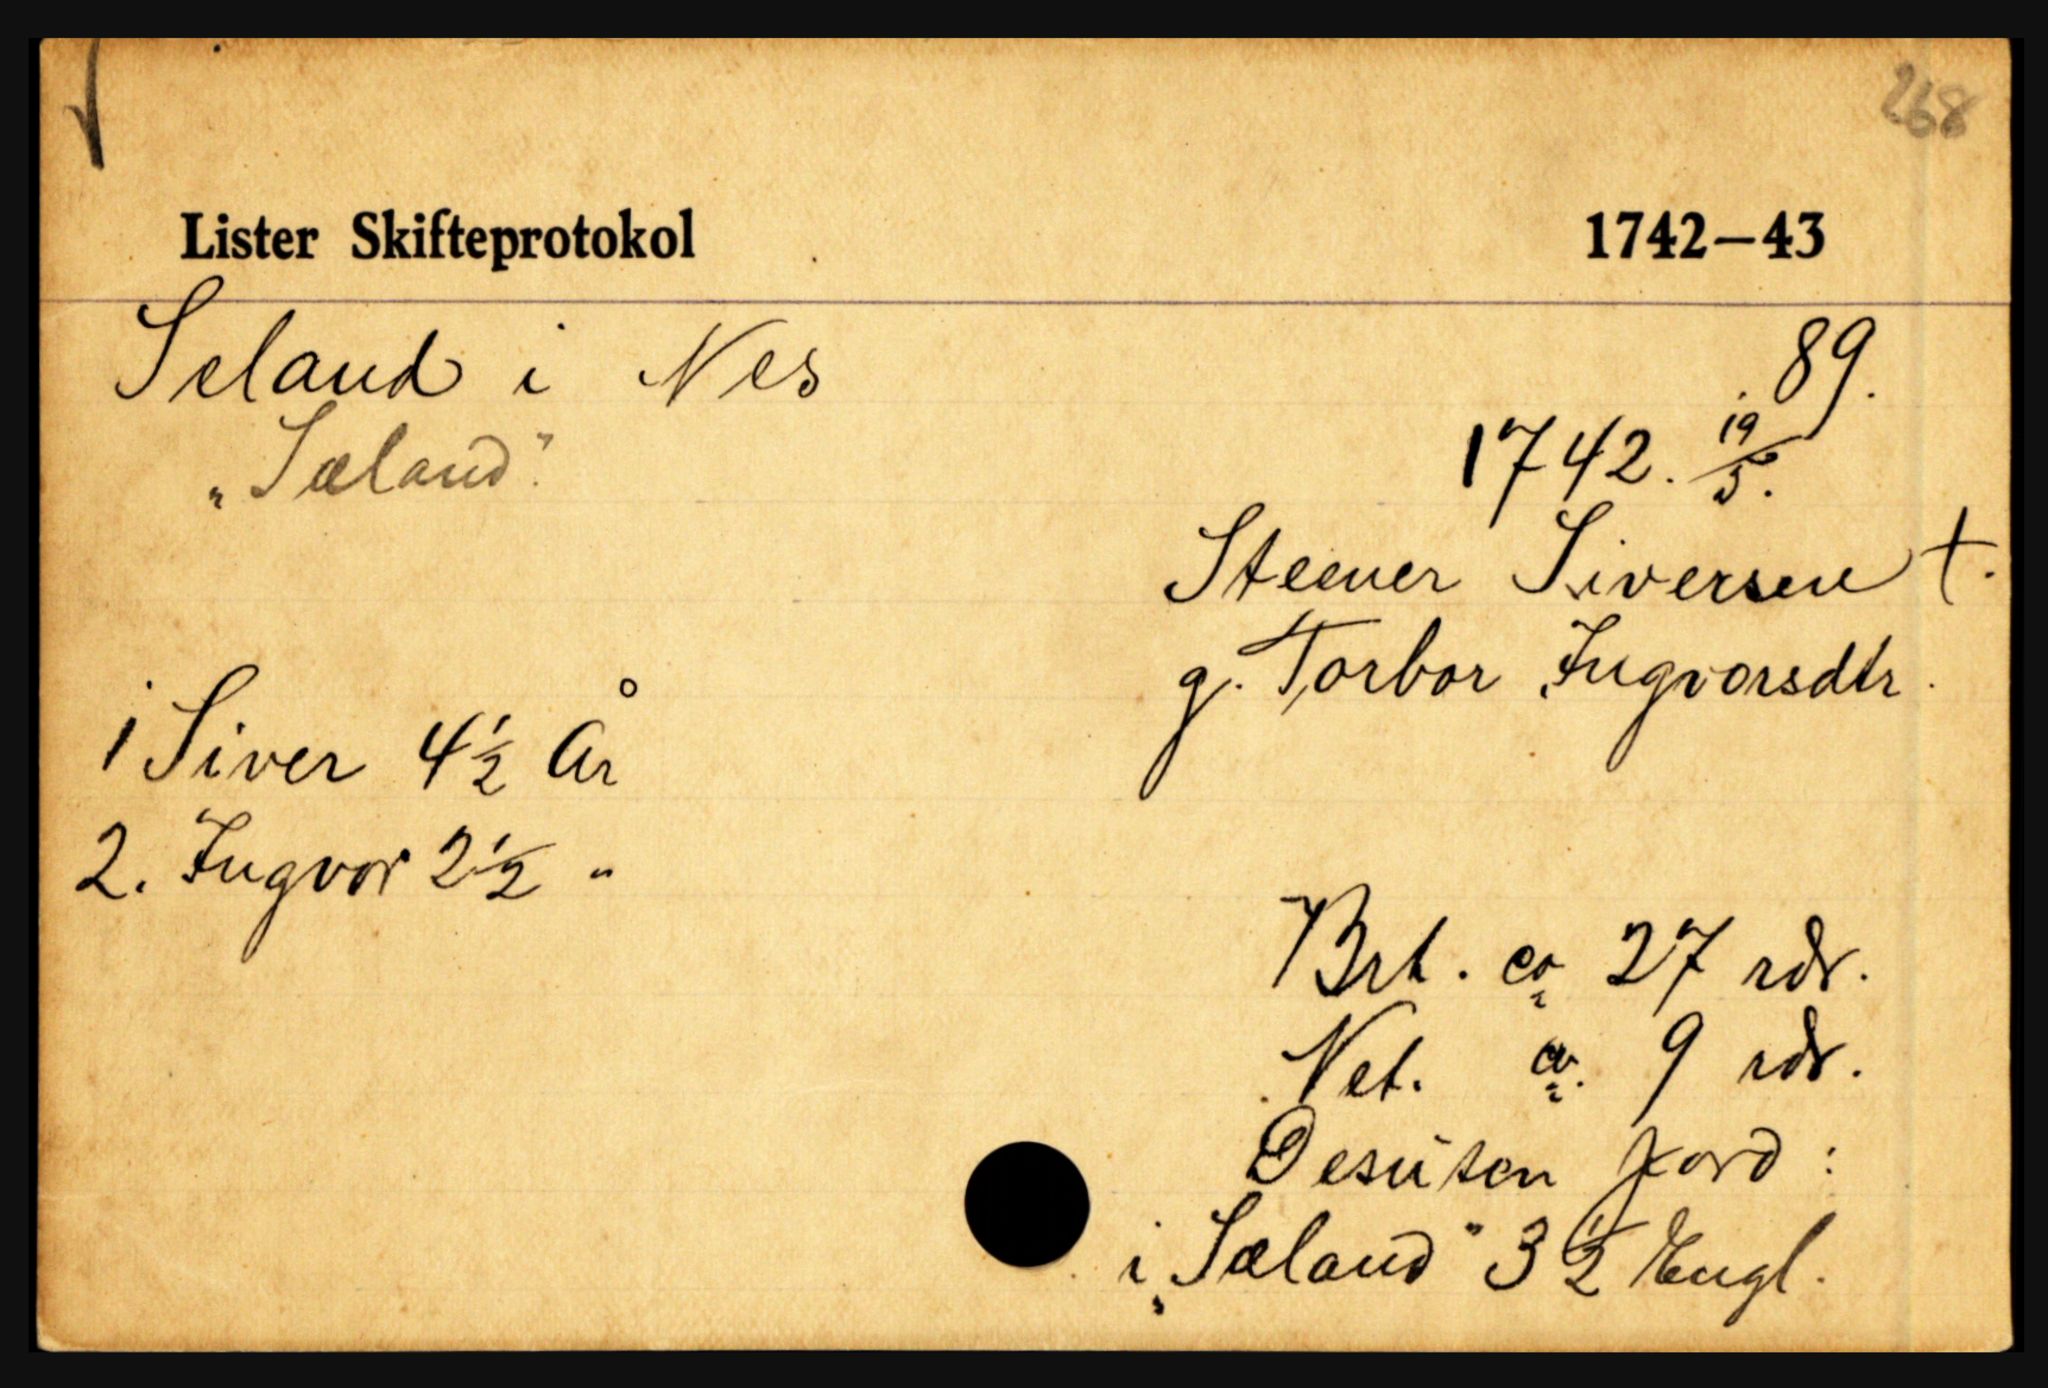 268
Lister Skifteprotokol 1742–43
Seland i Nes
89.
„Sæland".
1742. 19/5.
Steener Siversen †.
g. Torbor Ingvorsdtr.
1 Siver 4½ År
2. Ingvor 2½ "
Brt. ca 27 rdr.
Net. ca. 9 rdr.
Desuten jord:
i „Sæland" 3½ Engl.